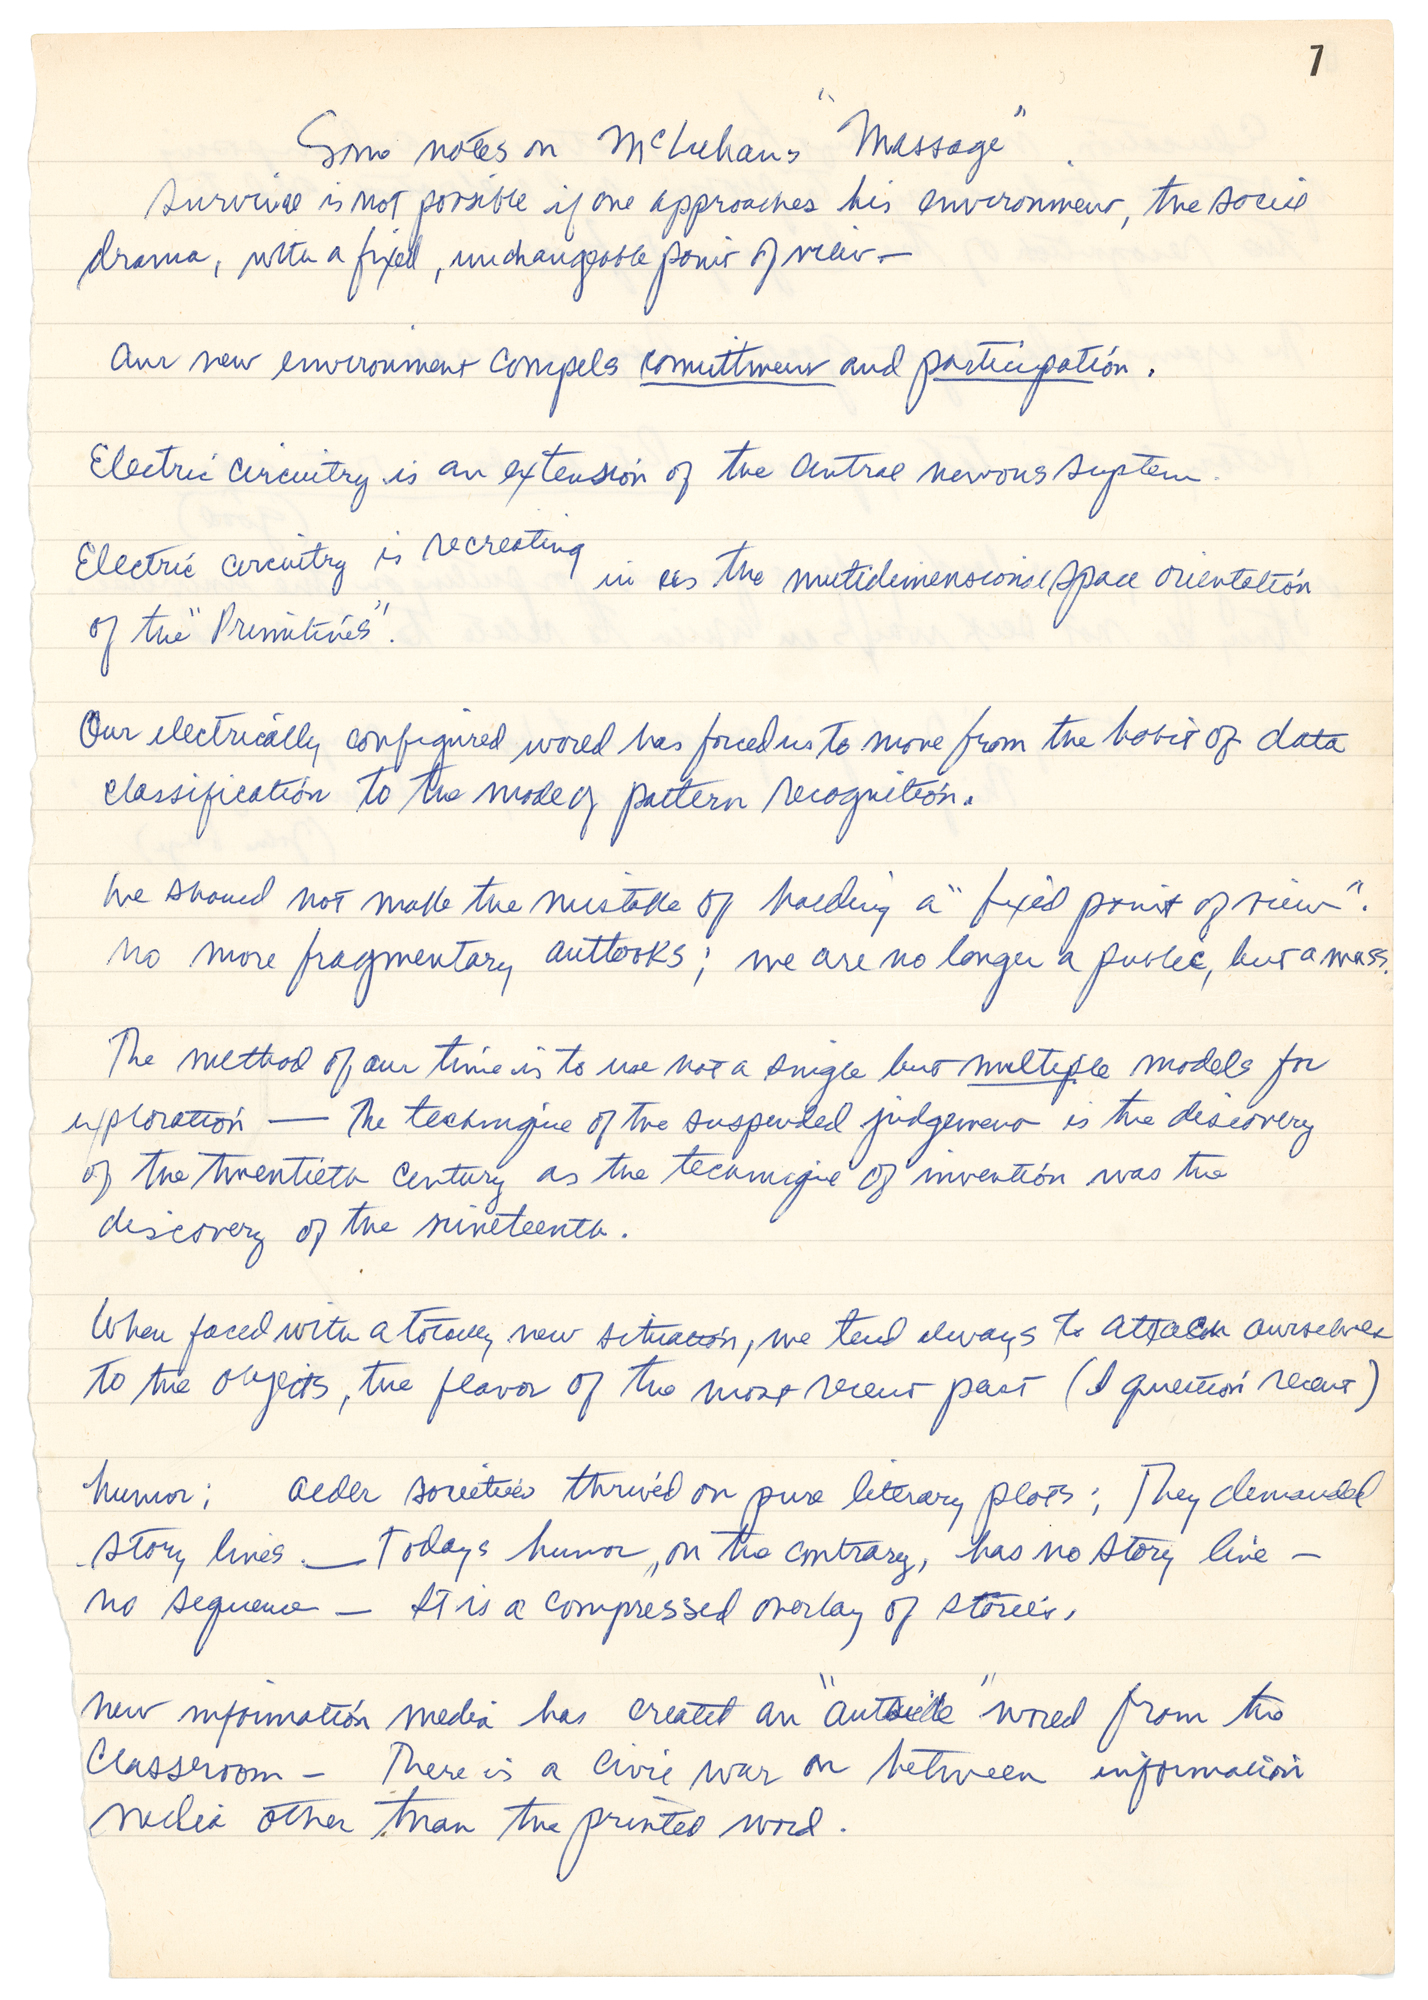 7
Some notes on McLuhans "Massage"
Survival is not possible if one approaches his environment, the social
drama, with a fixed, unchangeable point of view —
Our new environment compels comittment and participation.
Electric circuitry is an extension of the central nervous system.
Electric circuitry is recreating in us the mutidimensional space orientation
of the "Primitives".
Our electrically configured world has forced us to move from the habit of data
classification to the mode of pattern recognition.
We should not make the mistake of holding a "fixed point of view".
No more fragmentary outlooks; we are no longer a public, but a mass.
The method of our time is to use not a single but multiple models for
exploration — The technique of the suspended judgement is the discovery
of the twentieth century as the technique of invention was the
discovery of the nineteenth.
When faced with a totally new situation, we tend always to attach ourselves
to the objects, the flavor of the most recent past (I question recent)
humor; older societies thrived on pure literary plots; They demanded
story lines. — Todays humor, on the contrary, has no story line —
no sequence — It is a compressed overlay of stories.
New information media has created an "outside" world from the
Classroom — There is a civil war on between information
media other than the printed word.